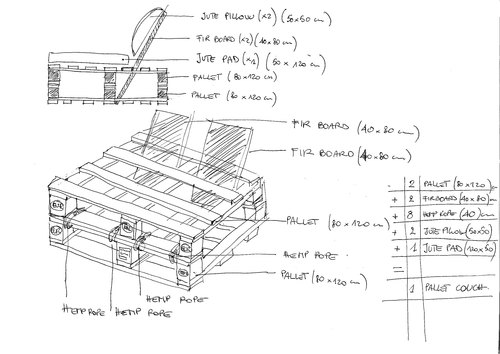 JUTE PILLOW (x2) (50x50 cm)
FIR BOARD (x2) (40x80 cm)
JUTE PAD (x1) (50 x 120 cm)
PALLET (80x120 cm)
PALLET (80x120 cm)
FIR BOARD (40x80 cm)
FIR BOARD (40x80 cm)
PALLET (80x120 cm)
HEMP ROPE
PALLET (80x120 cm)
HEMP ROPE
HEMP ROPE HEMP ROPE
- 2 PALLET (80x120)
+ 2 FIRBOARD (40x80) cm
+ 8 HEMP ROPE (40) cm
+ 2 JUTE PILLOW (50x50)
+ 1 JUTE PAD (120x50)
=
1 PALLET COUCH